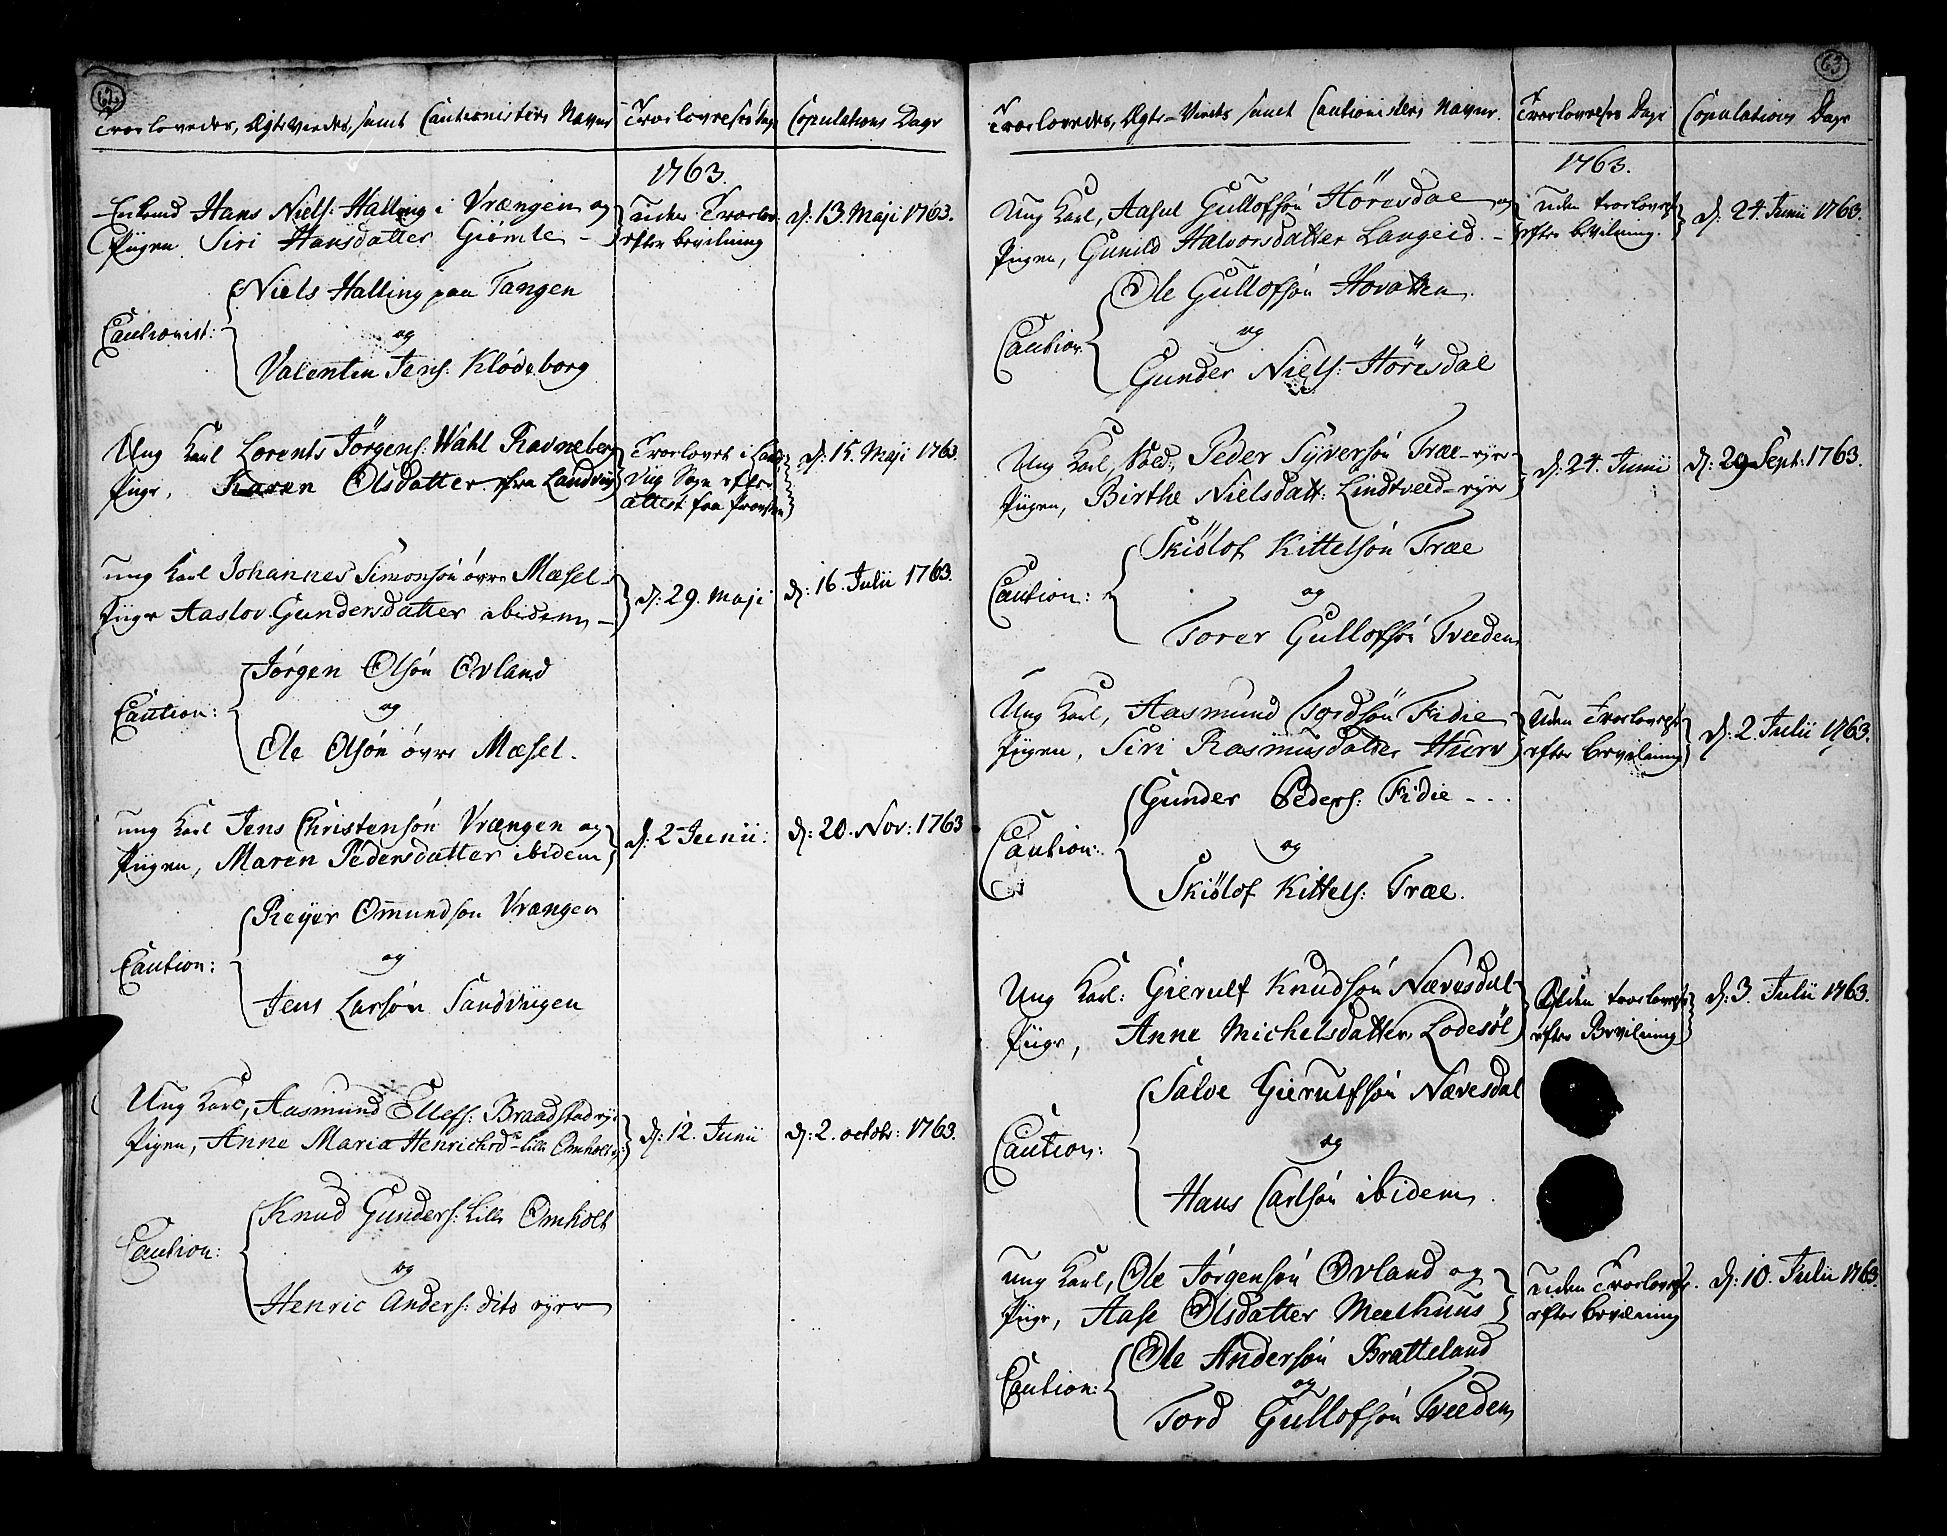 62.
Trolovedes, Ægteviedes, samt Cautionisters Navne
Trolovelses Dage
Copulations Dage
1763.
Enkemd Hans Niels: Halling i Vrængen og
Pigen Siri Hansdatter Giömle -
uden Trolov.
efter bevilning
d: 13. Maji 1763.
Niels Halling paa Tangen
Cautionist:
og
Valentin Jens: Klödeborg
Ung Karl Lorents Jörgens: Wahl Ravneberg
Pige, Karen Olsdatter fra Landvig
Trolovet i Land
vig Sogn efter
attest fra Provsten
d: 15. Maji 1763.
ung Karl Johannes Simonsön övre Mæsel -
Pige Aaslov Gundersdatter ibidem -
d: 29. Maji
d: 16. Julii 1763.
Jörgen Olsön Ovland
Caution:
og
Ole Olsön övre Mæsel.
ung Karl Jens Christensön Vrængen og
Pigen, Maren Pedersdatter ibidem
d: 2 Junii:
d: 20. Nov: 1763
Reyer Omundsön Vrængen
Caution:
og
Jens Larsön Sandviigen
Ung Karl, Aasmund Ellefs: Braadstad eye
Pigen, Anne Maria Henrichsd - lille Omholt
d: 12. Junii
d: 2. octobr: 1763.
Knud Gunders: Lille Omholt
Caution:
og
Henric Anders: dito eyer
63
Trolovedes, Ægte-Viedes samt Cautionisters Navne.
Trolovelses Dage
Copulations Dage
1763.
Ung Karl, Aasul Gullofsön Höresdal og
Pigen, Gunild Halvorsdatter Langeid. -
uden trolovelse
efter bevilning.
d: 24. Junii 1763.
Ole Gullofsön Hovatten
Caution:
og
Gunder Niels: Höresdal
Ung Karl, Sold: Peder Syversön Træe-eye-
Pigen, Birthe Nielsdatt: Lindtveed-eye
d: 24. Junii
d: 29 Sept: 1763.
Skiölof Kittelsön Træe
Caution:
og
Torer Gullofsön Tveeden
Ung Karl, Aasmund Tordsön Fidie
Pigen, Siri Rasmusdatter Hurv
Uden Trolovelse
efter bevilning
d: 2. Julii 1763.
Gunder Peders: Fidie - . .
Caution:
og
Skiölof Kittels: Træe.
Ung Karl: Gierulf Knudsön Nævesdal
Pige, Anne Michelsdatter Lodesöl
Uden trolovelse
efter Bevilning
d: 3. Julii 1763.
Salve Gierulfsön Nævesdal
Caution:
og
Hans Carlsön ibidem.
ung Karl, Ole Jörgensön Ovland og
Pige, Aase Olsdatter Mealhuus
uden Trolovelse.
efter bevilning
d: 10. Julii 1763
Ole Andersön Bratteland
Caution:
og
Tord Gullofsön Tveeden